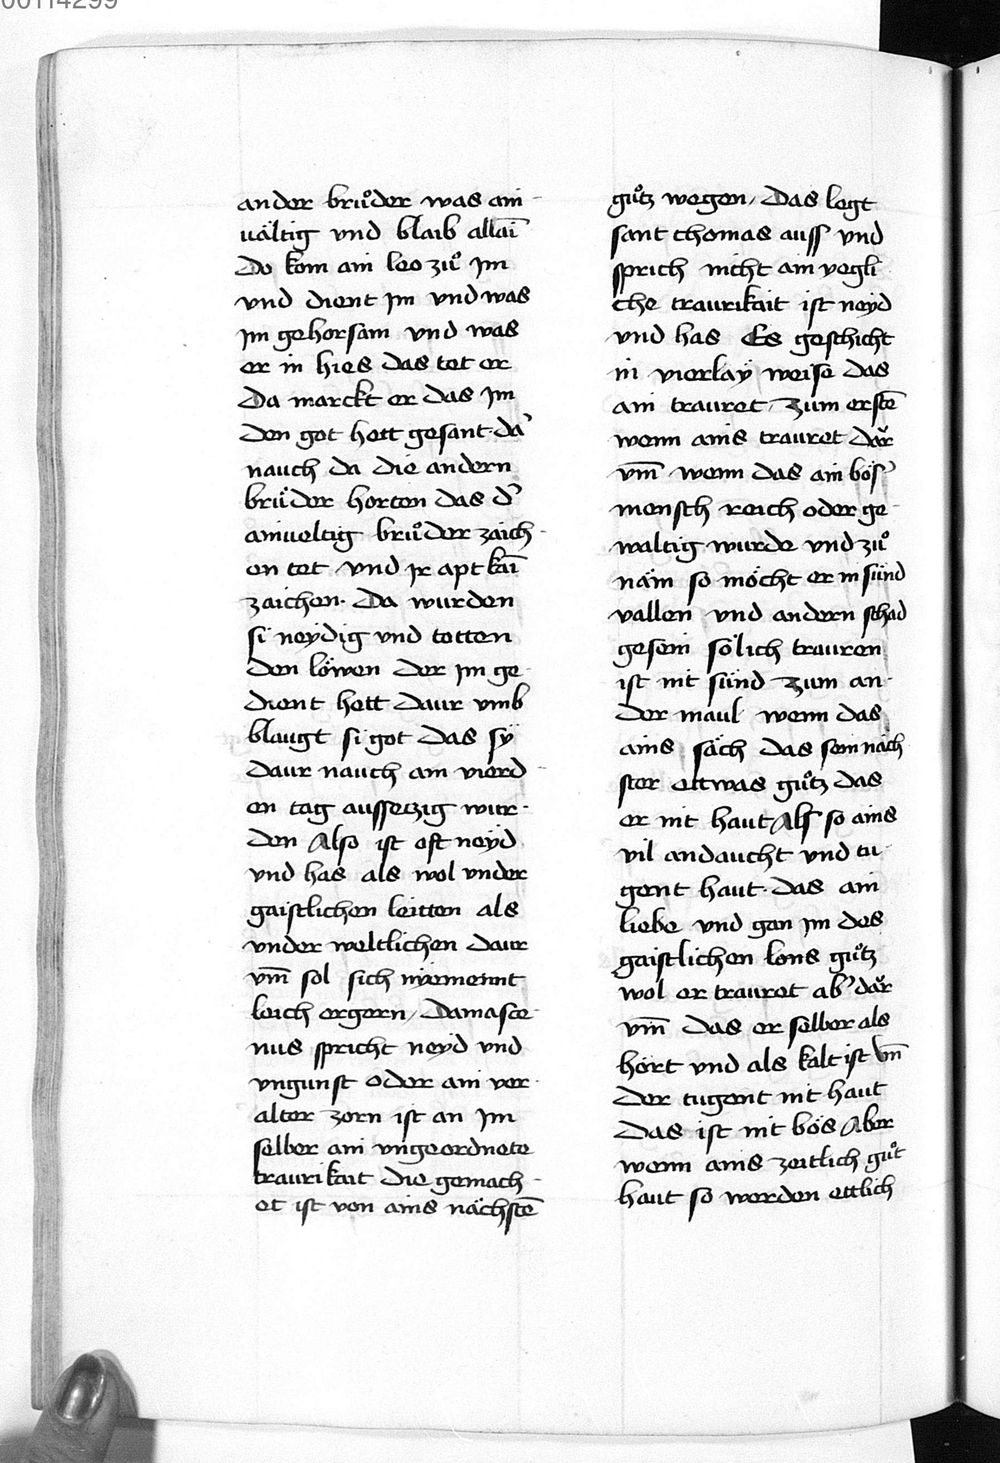 00114299
ander brůder was ain-
uältig vnd blaib allaī
Do kom ain leo zů Im
vnd dient Im vnd was
Im gehorsam vnd was
er in hies das tet er
Da marckt er das Im
den got hett gesant. da᾽
nauch da die andern
brüder horten das d᾽
ainueltig brůder zaich-
en tet vnd Ir apt kaī
zaichen. Da wurden
si neÿdig vnd totten
den löwen der Im ge-
dient hett daur vmb
blaugt si got das sÿ
daur nauch am vierd-
en tag aussetzig wur-
den Also ist oft neÿd
vnd has als wol vnder
gaistlichen leitten als
vnder weltlichen daur
vm̄ sol sich niemennt
leich ergern, Damasce-
nus spricht neÿd vnd
vngunst oder ain ver-
alter zorn ist an Im
selber ain vngeordnete
traurikait die gemach-
et ist von ains nächstē
gůtz wegen, Das legt
sant thomas auss vnd
sprich nicht ain yegli
che traurikait ist neÿd
vnd has Es geschicht
in vierlaÿ weise das
ain trauret, Zum erstē
wenn ains trauret dar̆
vm̄ wenn das ain bös᾽
mensch reich oder ge-
waltig wurde vnd zů
näm so möcht er in sünd
vallen vnd andern schad
gesein sölich trauren
ist nit sünd Zum an-
der maul wenn das
ains säch das sein näch
ster ettwas gůtz das
er nit haut Als so ains
vil andaucht vnd tu-
gent haut. das ain
liebe vnd gan Im des
gaistlichen lons gůtz
wol er trauret ab᾽ dar̆
vm̄ das er selber als
hört vnd als kalt ist vn̄
der tugent nit haut
Das ist nit bös Aber
wenn ains zeitlich gůt
haut so werden ettlich